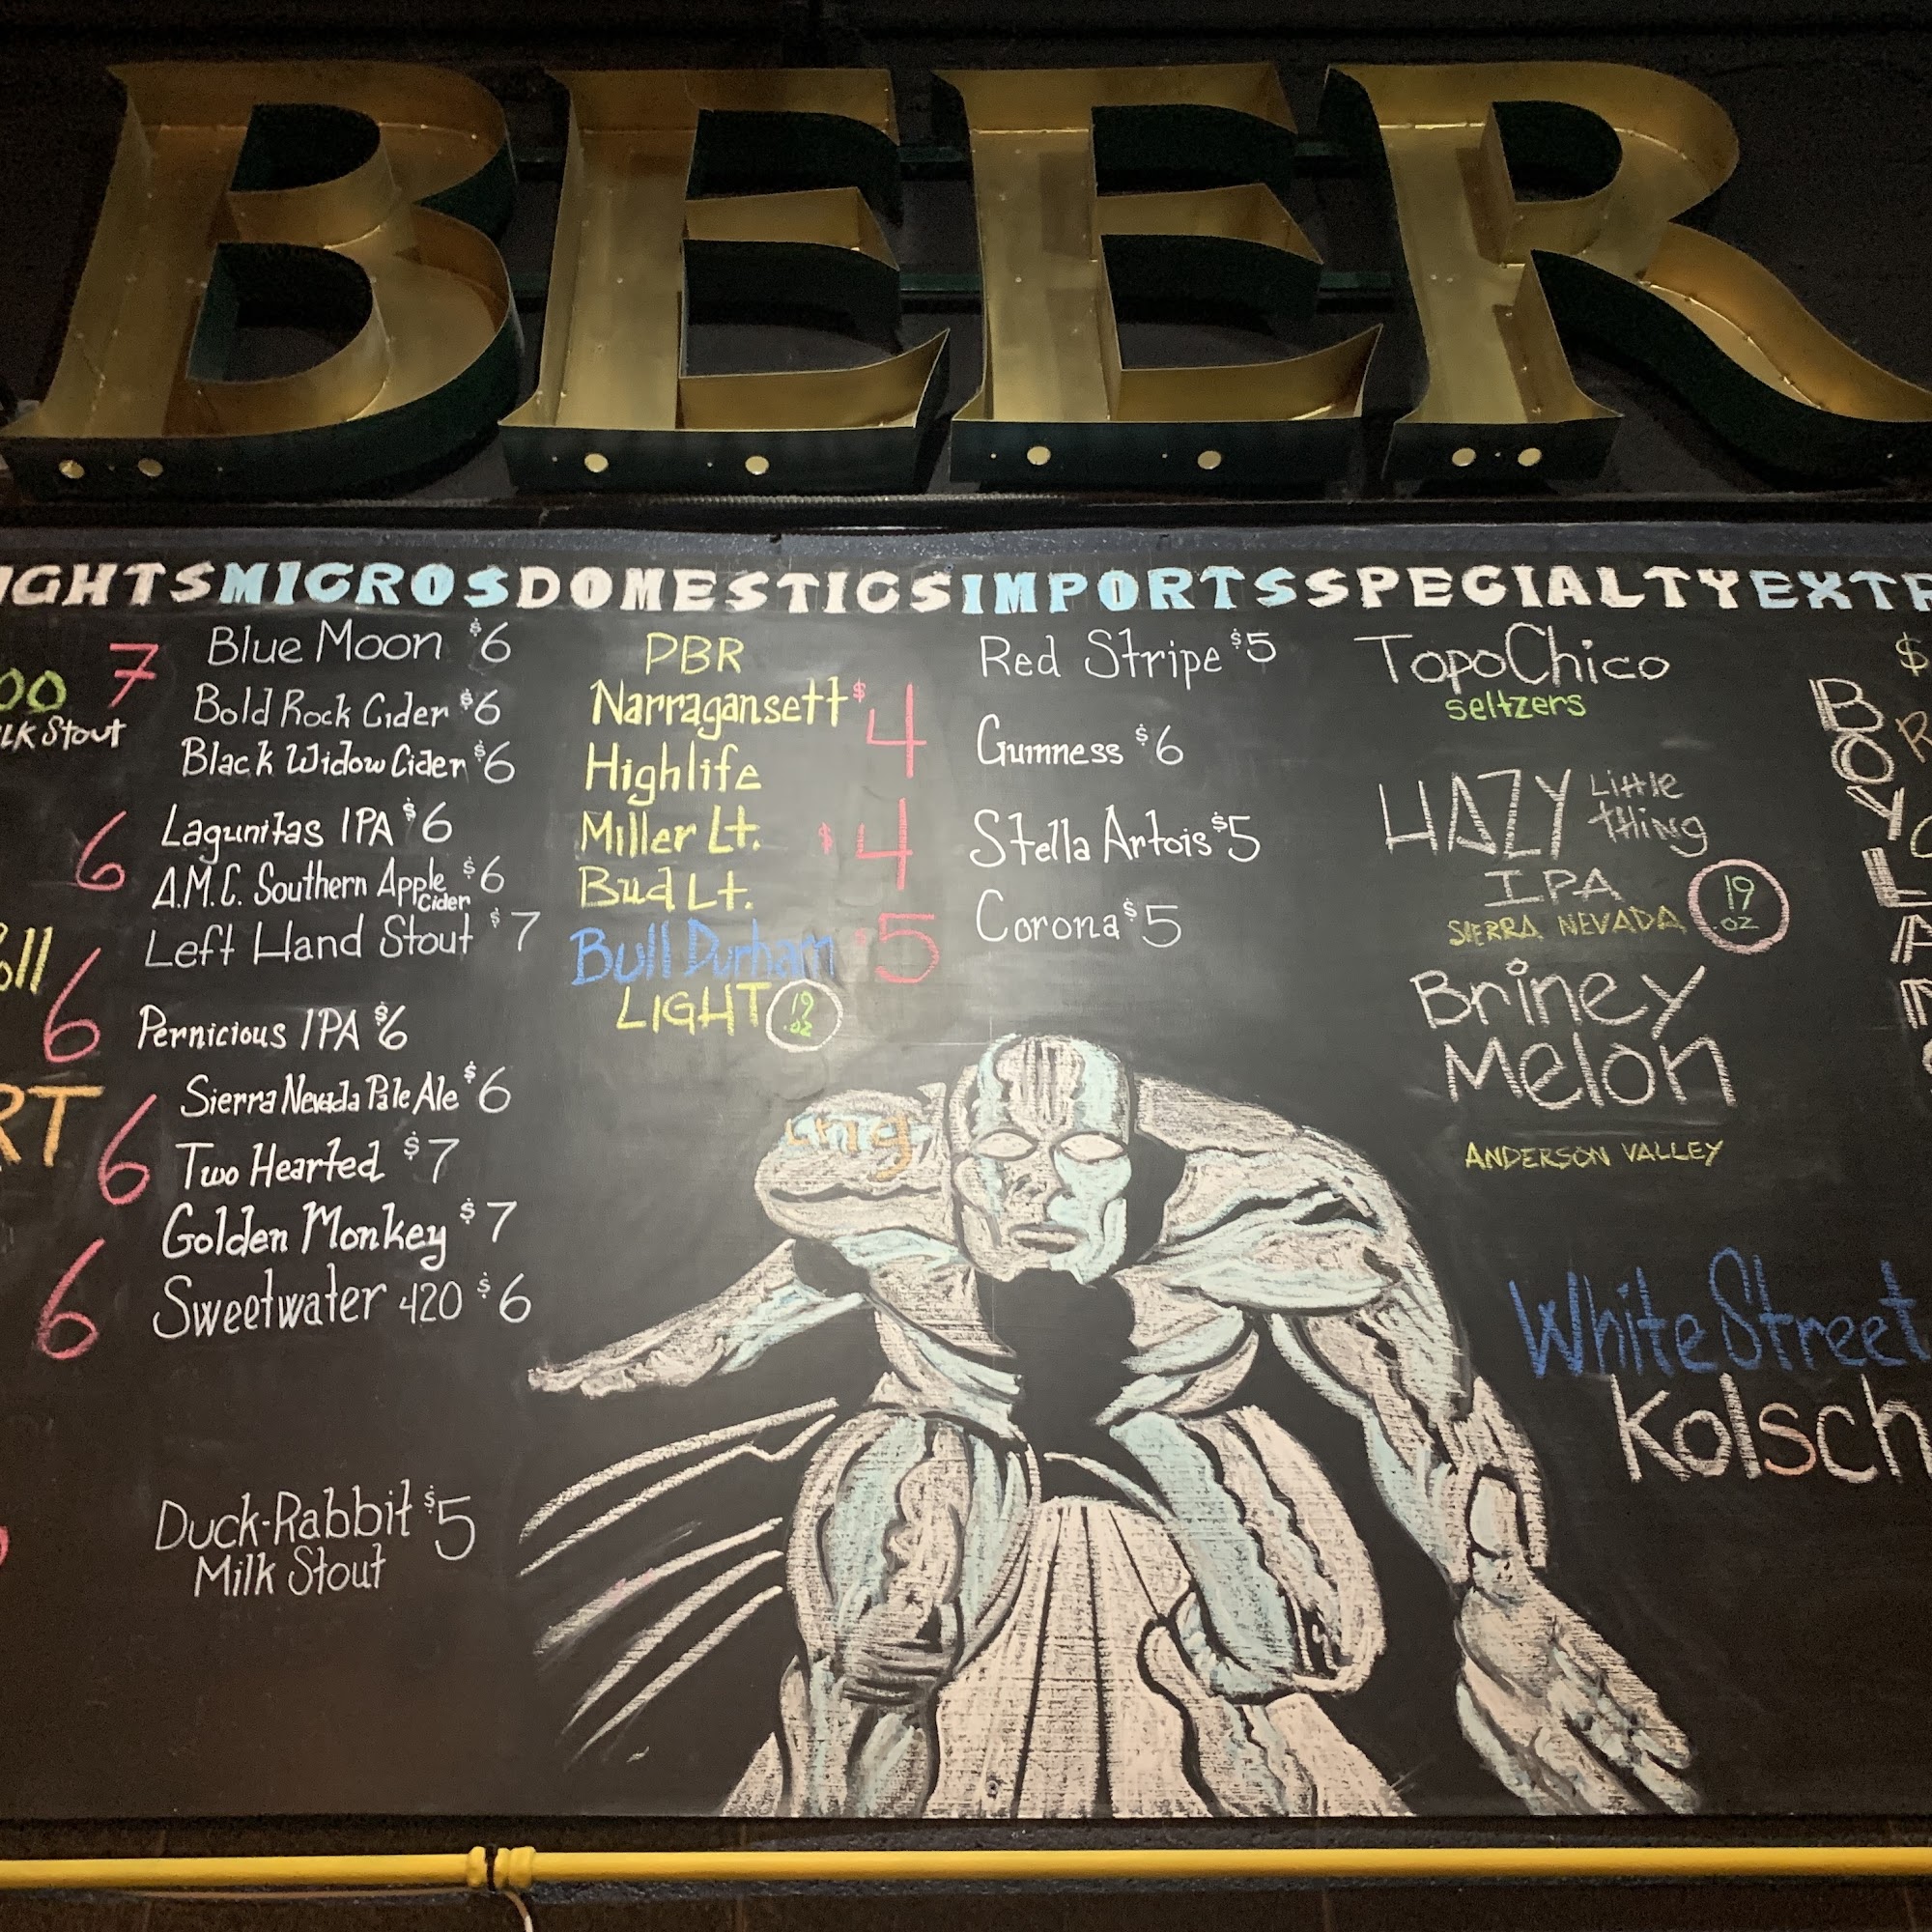 BEER
IGHTS MICROS DOMESTICS IMPORTS SPECIALTY EXTR
OO 7
LK Stout
6
6
RT 6
6
Blue Moon $6
Bold Rock Cider $6
Black Widow Cider $6
Lagunitas IPA $6
A.M.C. Southern Apple Cider $6
Left Hand Stout $7
Pernicious IPA $6
Sierra Nevada Pale Ale $6
Two Hearted $7
Golden Monkey $7
Sweetwater 420 $6
Duck-Rabbit $5
Milk Stout
PBR
Narragansett $4
Highlife
Miller Lt. $4
Bud Lt.
Bull Durham $5
LIGHT 19 oz
Red Stripe $5
Guinness $6
Stella Artois $5
Corona $5
TopoChico
seltzers
HAZY Little thing
IPA 19 oz
SIERRA NEVADA
Briney
Melon
ANDERSON VALLEY
White Street
Kolsch
$
B
O
Y
L
A